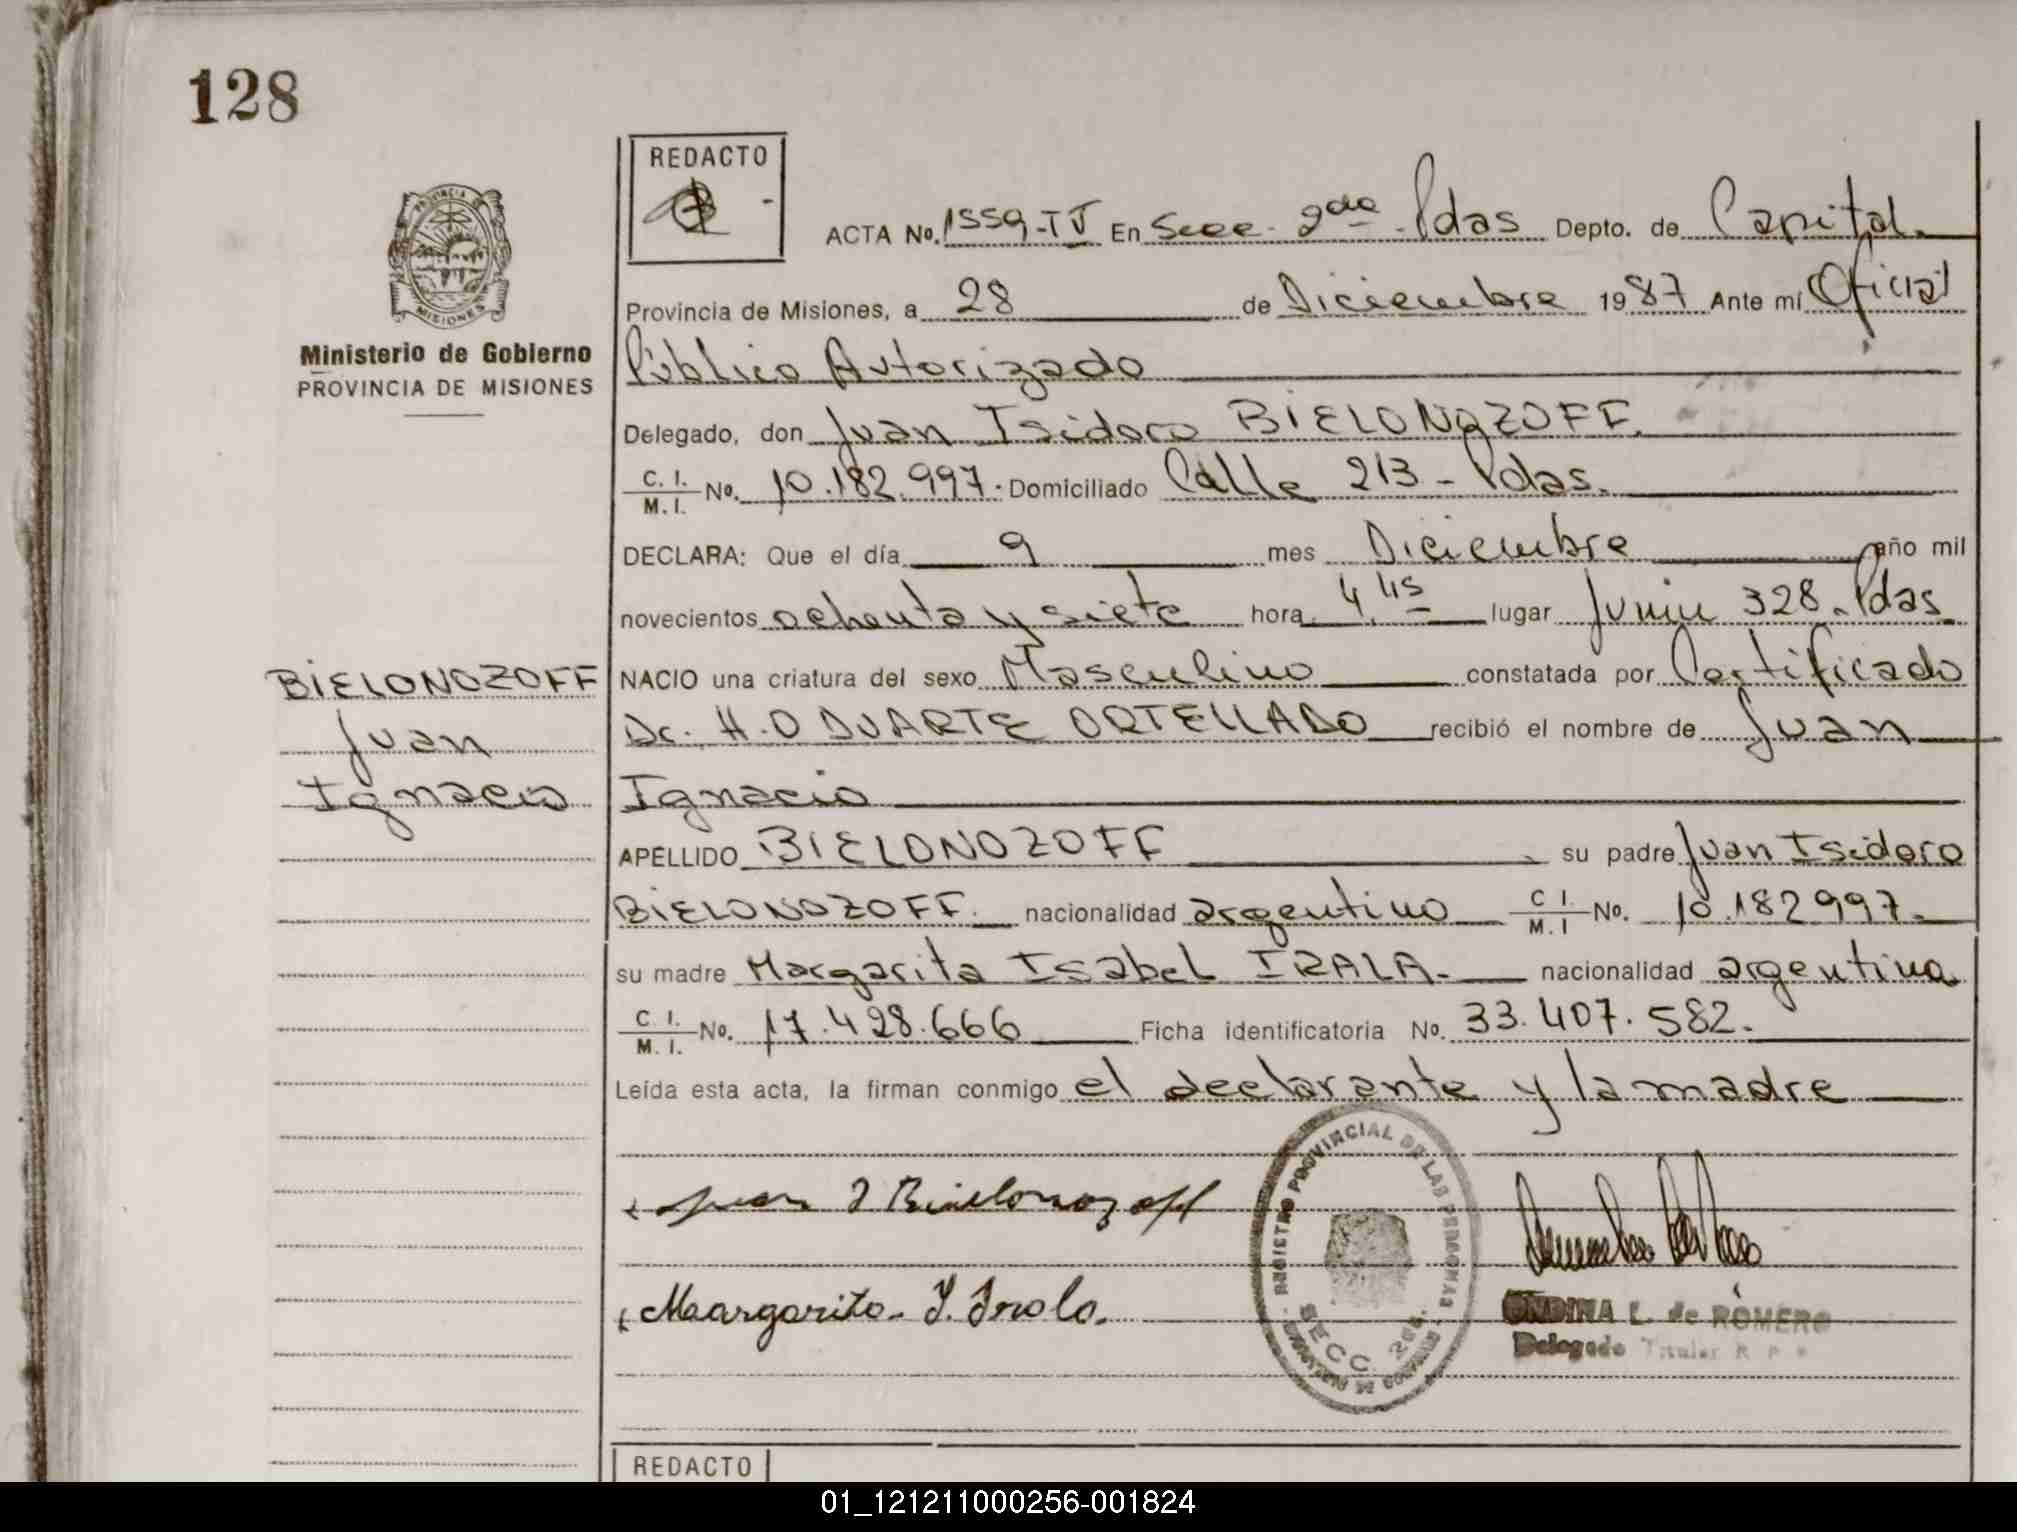 128
REDACTO
PROVINCIA DE
MISIONES
Ministerio de Gobierno
PROVINCIA DE MISIONES
ACTA No. 1559-IV En Secc. 2da Pdas Depto. de Capital.
Provincia de Misiones, a 28 de Diciembre 1987 Ante mí Oficial
Público Autorizado
Delegado, don Juan Isidoro BIELONOZOFF.
C. I. / M. I. No. 10.182.997. Domiciliado Calle 213 - Pdas.
DECLARA: Que el día 9 mes Diciembre año mil
novecientos ochenta y siete hora 4,45 lugar Junin 328 - Pdas
NACIO una criatura del sexo Masculino constatada por Certificado
Dr. H.O DUARTE ORTELLADO recibió el nombre de Juan
Ignacio
APELLIDO BIELONOZOFF su padre Juan Isidoro
BIELONOZOFF. nacionalidad argentino C I. / M. I No. 10.182997.
su madre Margarita Isabel IRALA. nacionalidad argentina
C. I. / M. I. No. 17.428.666 Ficha identificatoria No. 33.407.582.
Leída esta acta, la firman conmigo el declarante y la madre
BIELONOZOFF
Juan
Ignacio
Juan I Bielonozoff
Margarita I. Irala.
REGISTRO PROVINCIAL DE LAS PERSONAS
SECC. 2da.
ONDINA L. de ROMERO
Delegado Titular R P
REDACTO
01_121211000256-001824